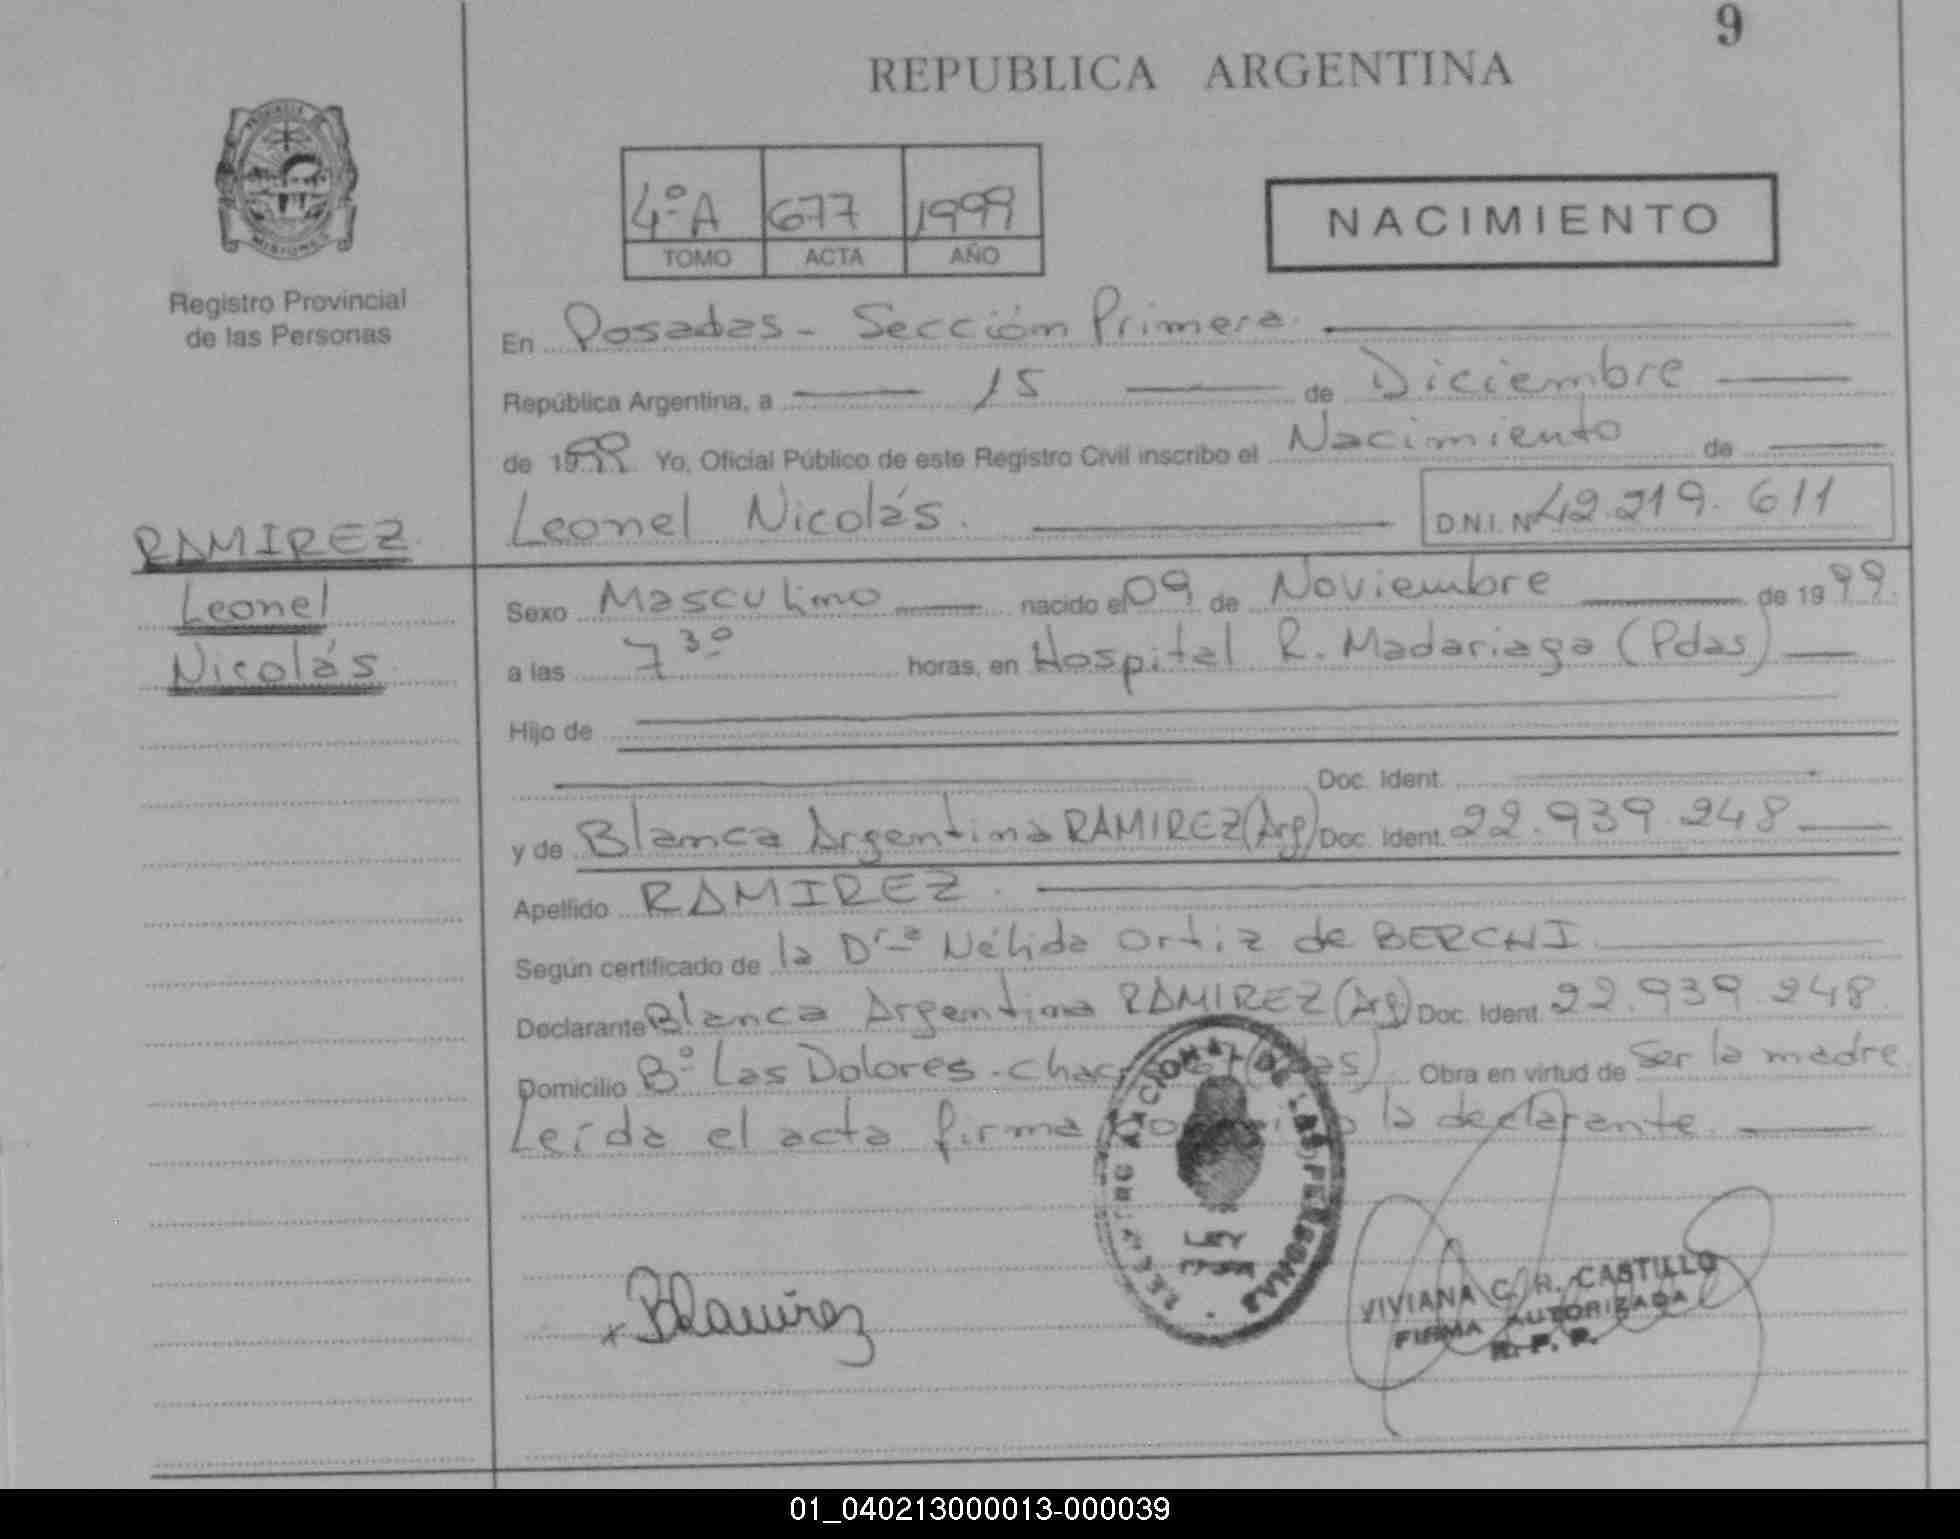 9
REPUBLICA ARGENTINA
4ºA 677 1999
TOMO ACTA AÑO
NACIMIENTO
MISIONES
Registro Provincial
de las Personas
En Posadas - Sección Primera.
República Argentina, a 15 de Diciembre
de 1999 Yo, Oficial Público de este Registro Civil inscribo el Nacimiento de
Leonel Nicolás. D.N.I. Nº 42.219.611
RAMIREZ
Leonel
Nicolás
Sexo Masculino nacido el 09 de Noviembre de 1999.
a las 7 30 horas, en Hospital R. Madariaga (Pdas)
Hijo de
Doc. Ident.
y de Blanca Argentina RAMIREZ (Arg) Doc. Ident. 22.939.248
Apellido RAMIREZ.
Según certificado de la Dra Nélida Ortiz de BERCHI
Declarante Blanca Argentina RAMIREZ (Arg) Doc. Ident. 22.939.248
Domicilio Bº Las Dolores - Obra en virtud de ser la madre.
Leída el acta firma la declarante.
DE LAS PERSONAS
LEY
x BRamirez
VIVIANA C. R. CASTILLO
FIRMA AUTORIZADA
R. P. P.
01_040213000013-000039